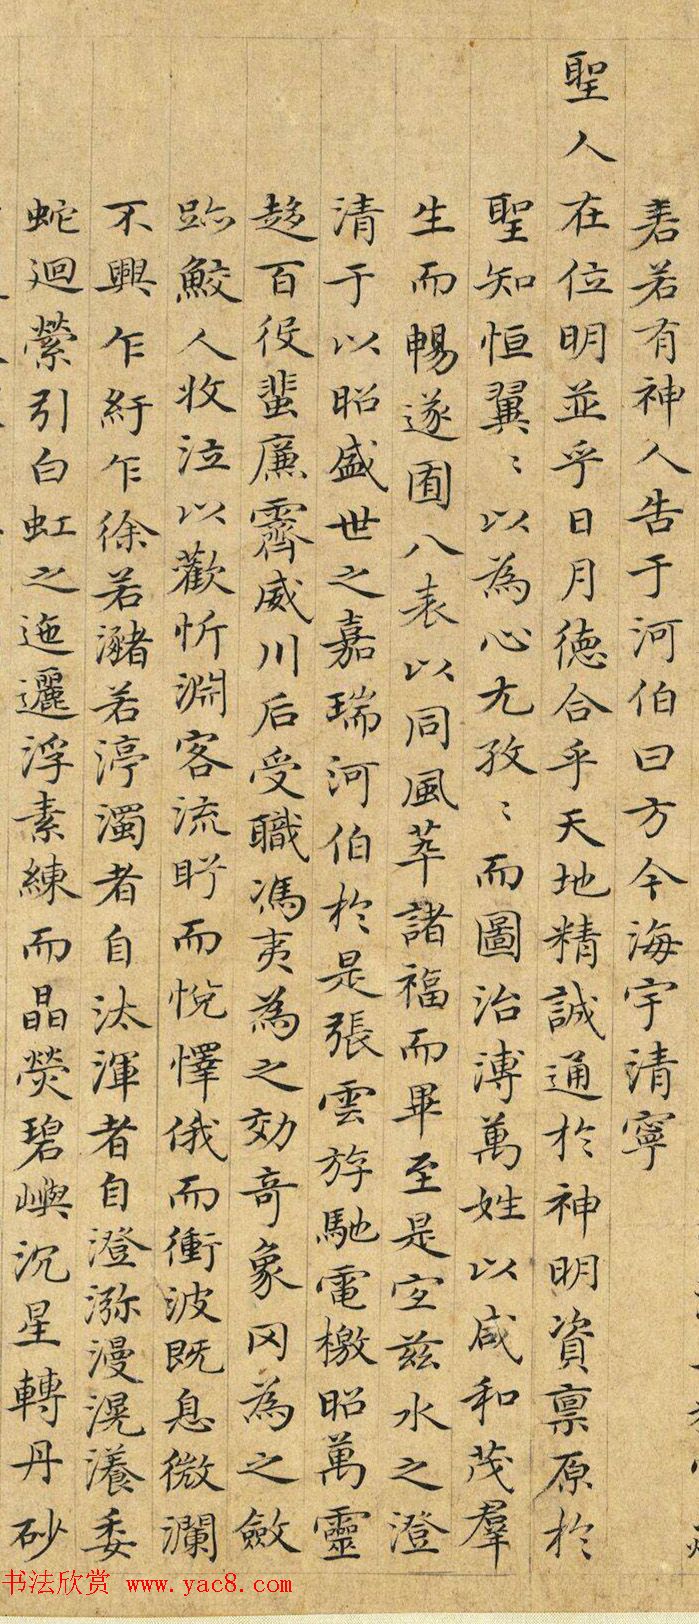 砉若有神人告于河伯曰方今海宇清寧
聖人在位明並乎日月德合乎天地精誠通於神明資稟原於
聖知恒翼〻以為心尤孜〻而圖治溥萬姓以咸和茂羣
生而暢遂囿八表以同風萃諸福而畢至是宜茲水之澄
清于以昭盛世之嘉瑞河伯於是張雲斿馳電檄昭萬靈
趍百役蜚廉霽威川后受職馮夷為之効竒象罔為之斂
跡鮫人收泣以歡忻淵客流眄而悅懌俄而衝波既息微瀾
不興乍紆乍徐若瀦若渟濁者自汰渾者自澄瀰漫滉瀁委
蛇迴縈引白虹之迤邐浮素練而晶熒碧嶼沉星轉丹砂
书法欣赏 www.yac8.com